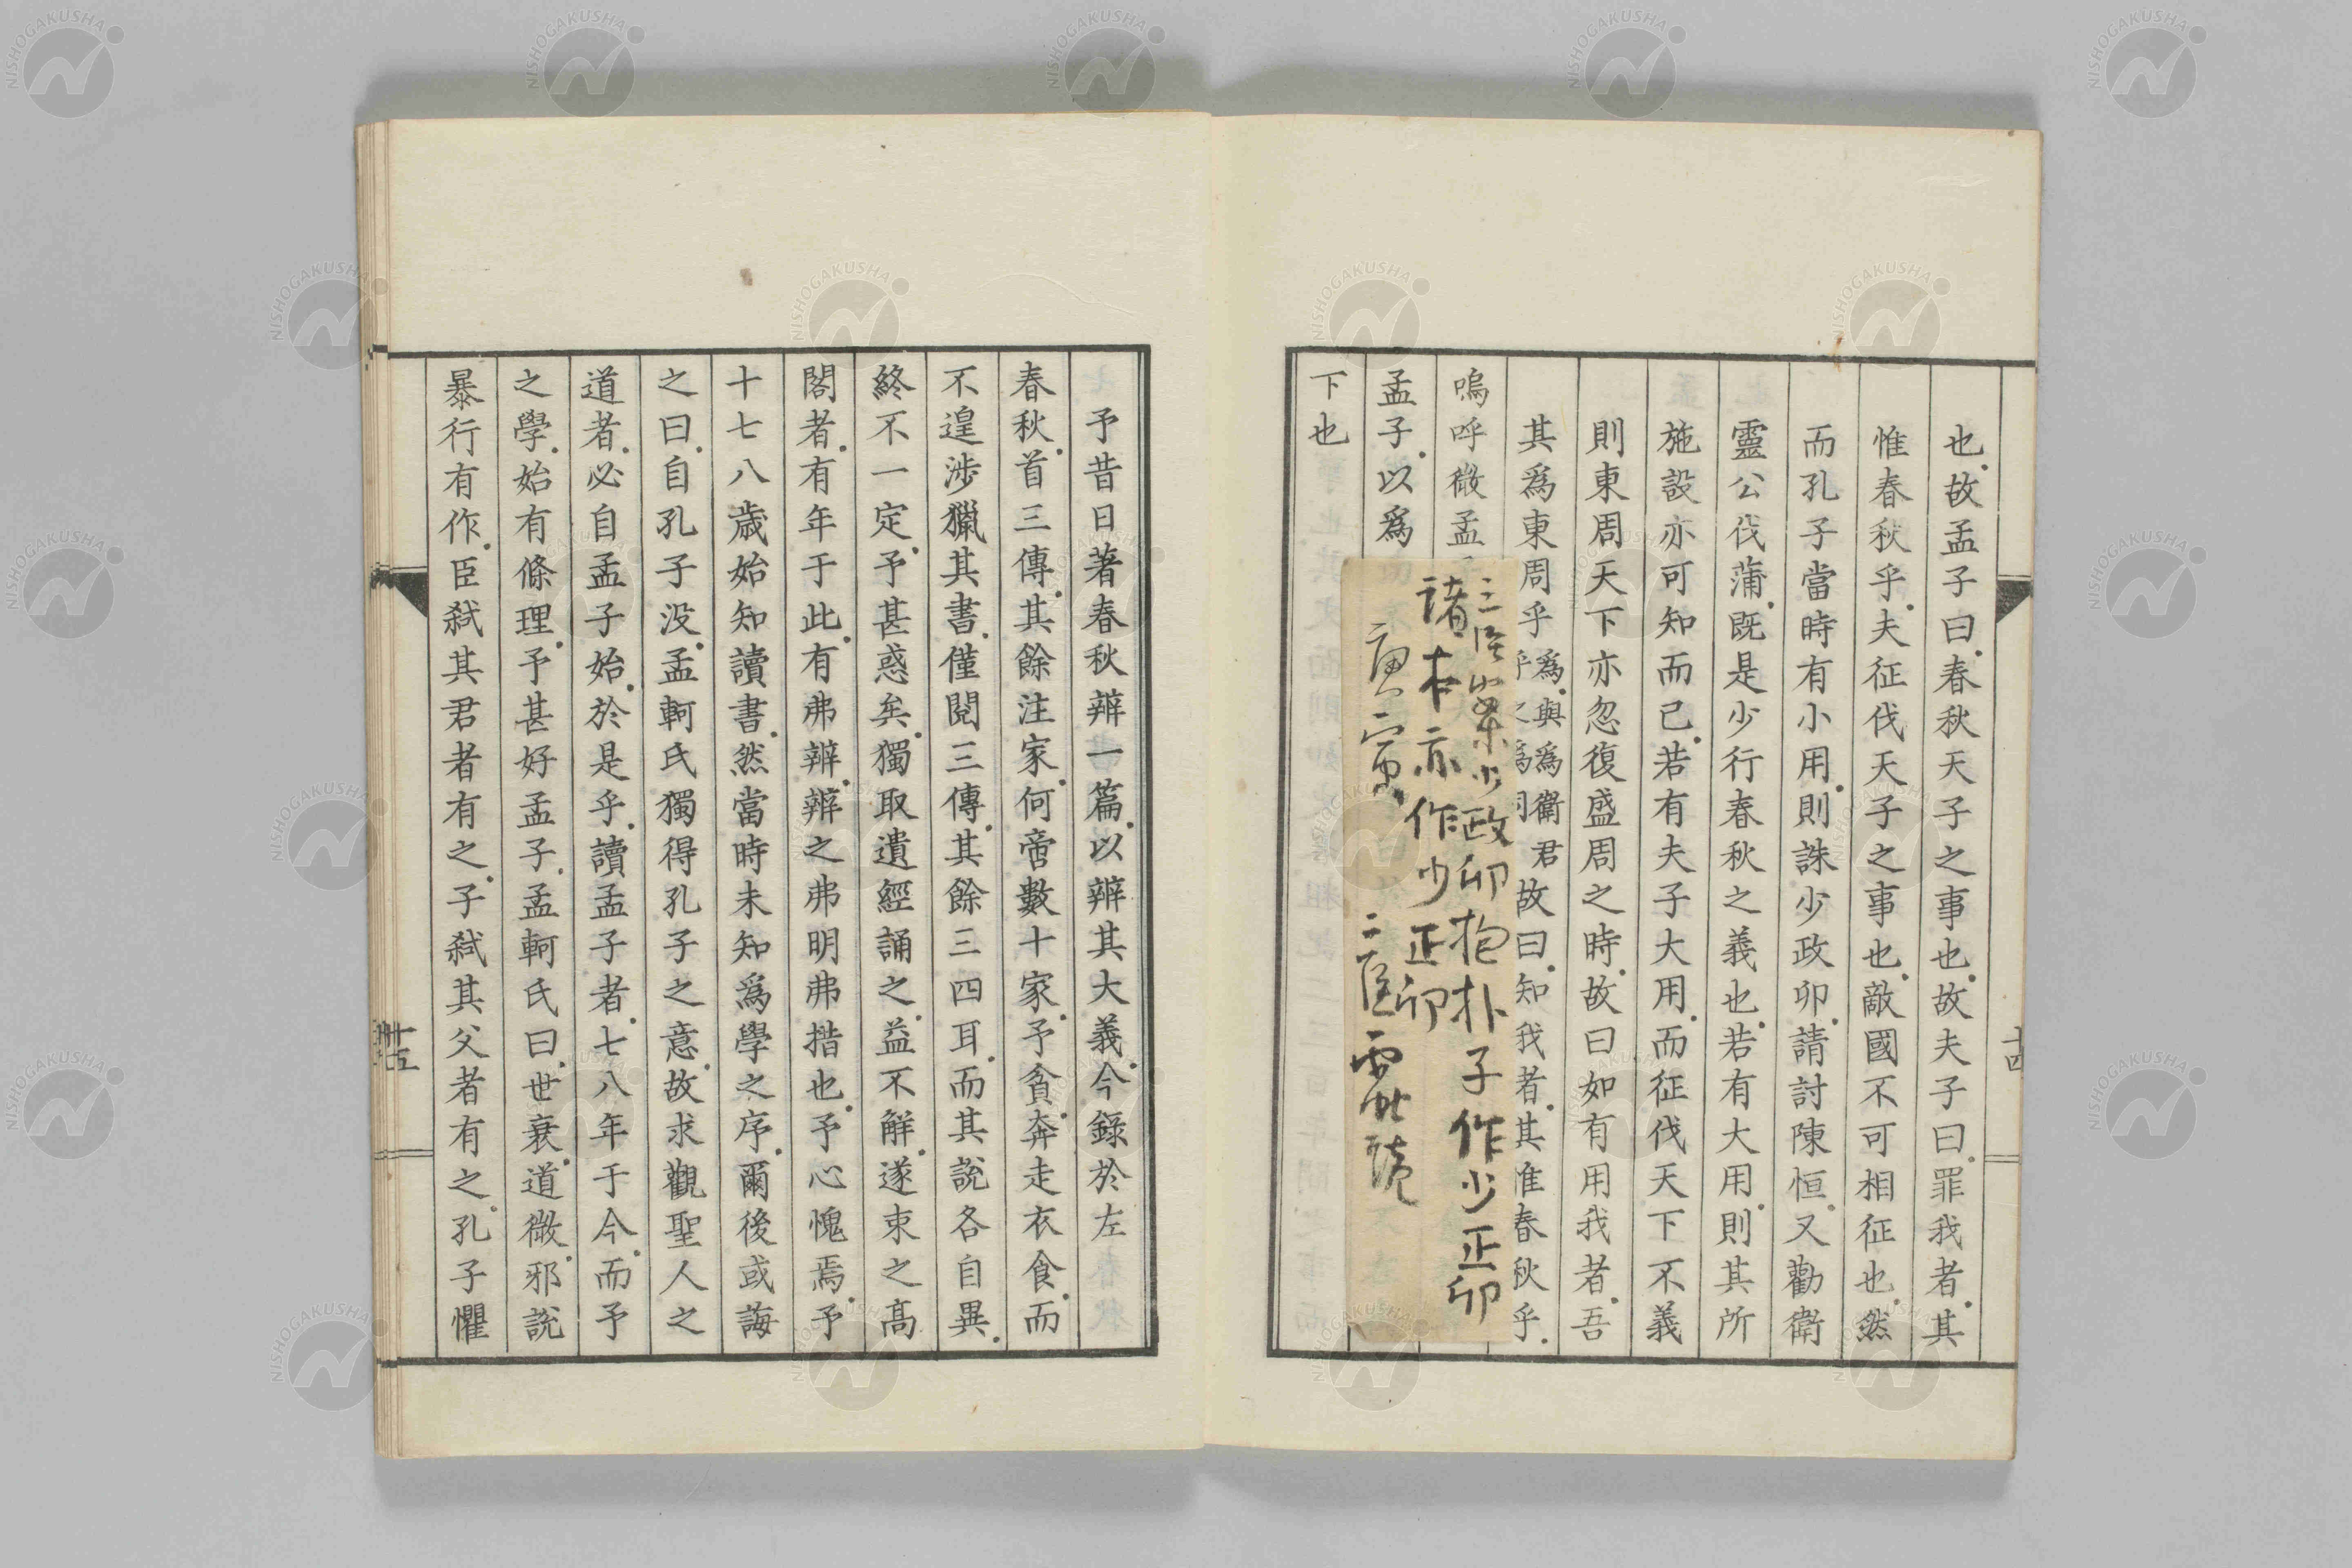 也故孟子曰春秋天子之事也故夫子曰罪我者其
惟春秋乎夫征伐天子之事也敵國不可相征也然
而孔子當時有小用則誅少政卯請討陳恒又勸衛
靈公伐蒲既是少行春秋之義也若有大用則其所
施設亦可知而已若有夫子大用而征伐天下不義
則東周天下亦忽復盛周之時故曰如有用我者吾
其爲東周乎
爲與爲衛君
乎之爲同
故曰知我者其惟春秋乎
嗚呼微孟
孟子以爲
下也
少政卯抱朴子作少正卯
諸本亦作少正卯
十四
予昔日著春秋辨一篇以辨其大義今錄於左
春秋首三傳其餘注家何啻數十家予貧奔走衣食而
不遑涉獵其書僅閱三傳其餘三四耳而其說各自異
終不一定予甚惑矣獨取遺經誦之益不解遂束之高
閣者有年于此有弗辨辨之弗明弗措也予心愧焉予
十七八歲始知讀書然當時未知爲學之序爾後或誨
之曰自孔子没孟軻氏獨得孔子之意故求觀聖人之
道者必自孟子始於是乎讀孟子者七八年于今而予
之學始有條理予甚好孟子孟軻氏曰世衰道微邪說
暴行有作臣弑其君者有之子弑其父者有之孔子懼
十五
NISHOGAKUSHA